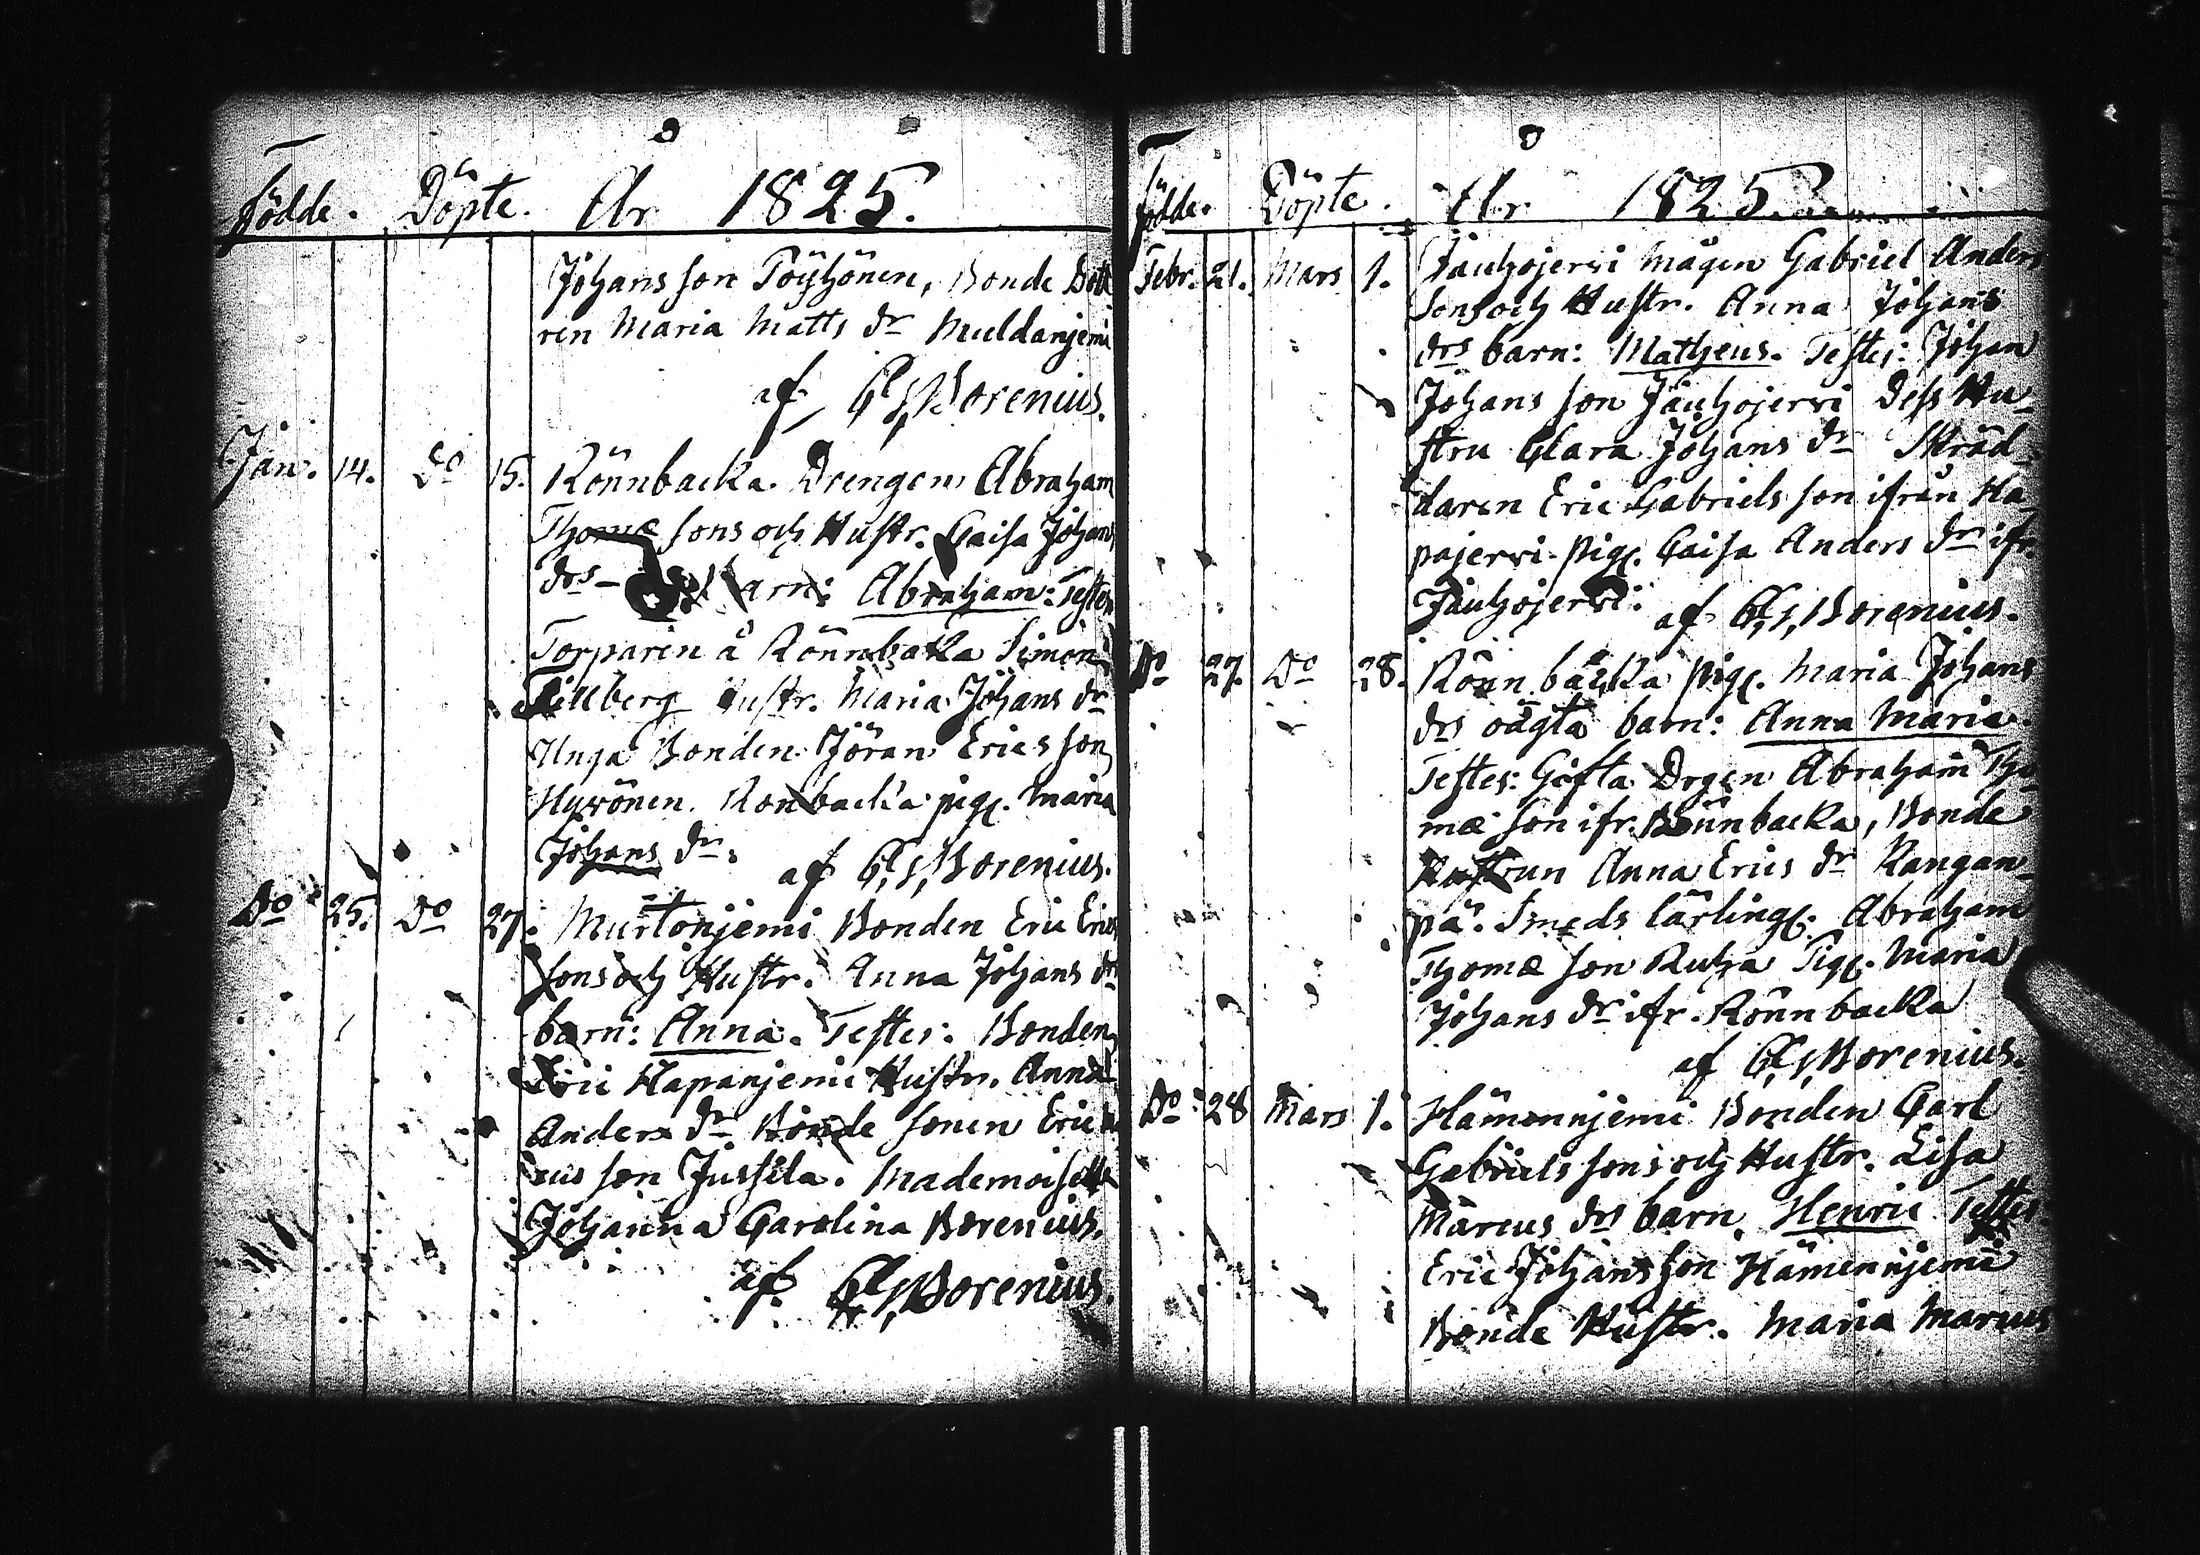 Födde. Döpte. År 1825.
Johans son Pöyhönen, Bonde Dott
ren Maria Matts dr Muldanjemi
af C. G. Borenius.
Jan. 14. Do 15. Rönnbacka Drengen Abraham
Thomæ sons och Hustr. Caisa Johans
drs barn: Abraham: Testes
Torparen å Rönnbacka Simon
Hustr. Maria Johans dr
Unga Bonden Jöran Erics son
Hyvönen. Rönbacka pig. Maria
Johans dr. af C. G. Borenius.
Do 25. Do 27. Murtonjemi Bonden Eric Erics
sons och Hustr. Anna Johans drs
barn: Anna. Testes: Bonden
Eric Hapanjemi Hustr. Anna
Anders dr Bonde sonen Eric
cus son Jussila. Mademoiselle
Johanna Carolina Borenius.
af C. G. Borenius.
Födde. Döpte. År 1825.
Febr. 21. Mars 1. Jauhojervi Mågen Gabriel Anders
Sons och Hustr. Anna Johans
drs barn: Matheus. Testes: Johan
Johans son Jauhojervi Dess Hu-
stru Clara Johans dr Skräd-
daren Eric Gabriels son ifrån Ha-
pajervi pig. Caisa Anders dr ifr.
Jauhojervi. af C. G. Borenius.
Do 27. Do 28. Rönnbacka pig. Maria Johans
drs oägta barn: Anna Maria.
Testes: Gifta Drgen Abraham Tho
mæ son ifr. Rönnbacka, Bonde
Hustrun Anna Erics dr Kangan-
pä. Smeds lärling. Abraham
Thomæ son Pig. Maria
Johans dr ifr. Rönnbacka
af C. G. Borenius.
Do 28 Mars 1. Hämennjemi Bonden Carl
Gabriels sons och Hustr. Lisa
Marcus drs barn. Henric Testes.
Eric Johans son Hämennjemi
Bonde Hustr. Maria Marcus